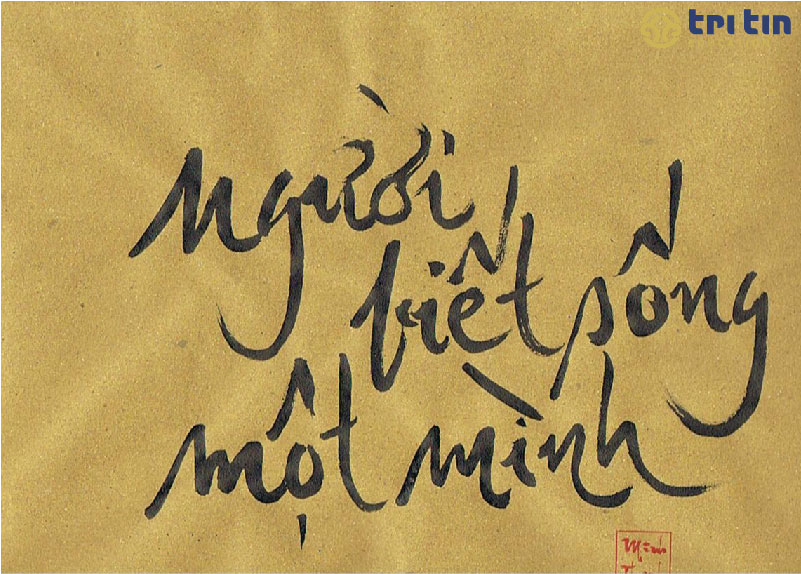 tri tín
người
biết sống
một mình
Minh